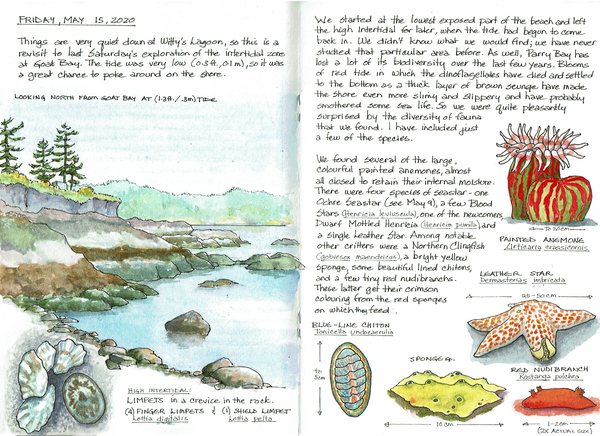 FRIDAY, MAY 15, 2020
Things are very quiet down at Witty's Lagoon, so this is a
revisit to last Saturday's exploration of the intertidal zone
at Goat Bay. The tide was very low (0.3 ft, 0.1 m), so it was
a great chance to poke around on the shore.
LOOKING NORTH FROM GOAT BAY AT (1.3 ft. / .3m) TIDE
HIGH INTERTIDAL:
LIMPETS in a crevice in the rock.
(4) FINGER LIMPETS & (1) SHIELD LIMPET
Lottia digitalis Lottia pelta
We started at the lowest exposed part of the beach and left
the high intertidal for later, when the tide had begun to come
back in. We didn't know what we would find; we have never
studied that particular area before. As well, Parry Bay has
lost a lot of its biodiversity over the last few years. Blooms
of red tide in which the dinoflagellates have died and settled
to the bottom as a thick layer of brown seunge have made
the shore even more slimy and slippery and have probably
smothered some sea life. So we were quite pleasantly
surprised by the diversity of fauna
that we found. I have included just
a few of the species.
We found several of the large,
colourful painted anemones, almost
all closed to retain their internal moisture.
There were four species of seastar - one
Ochre Seastar (see May 9), a few Blood
Stars (Henricia leviuscula), one of the newcomers,
Dwarf Mottled Henricia (Henricia pumila) and
a single Leather Star. Among notable
other critters were a Northern Clingfish
(gobiesox maeandricus), a bright yellow
sponge, some beautiful lined chitons,
and a few tiny red nudibranchs.
These latter get their crimson
colouring from the red sponges
on which they feed.
TO 20 cm
PAINTED ANEMONE
Urticaria crassicornis
LEATHER STAR
Dermasterias imbricata
25-30 cm
BLUE-LINE CHITON
Tonicella undocaerulia
to
5cm
SPONGE sp.
10 cm
RED NUDIBRANCH
Rostanga pulchra
1-2cm
(2X ACTUAL SIZE)